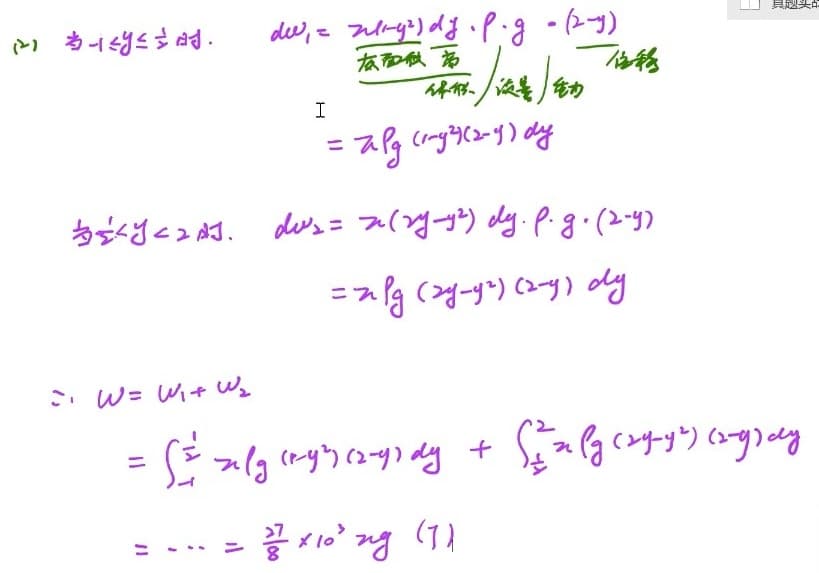 真题实战
(2) 当-1≤y≤1/2时. dw₁= π(1-y²)dy·ρ·g·(2-y)
底面积 高 位移
体积 质量 重力
= πρg (1-y²)(2-y) dy
当1/2<y<2时. dw₂= π(2y-y²) dy·ρ·g·(2-y)
= πρg (2y-y²) (2-y) dy
∴ w= w₁+w₂
= ∫₋₁^(1/2) πρg (1-y²)(2-y) dy + ∫_(1/2)^2 πρg (2y-y²)(2-y)dy
= -··· = 27/8 ×10³ πg (J)